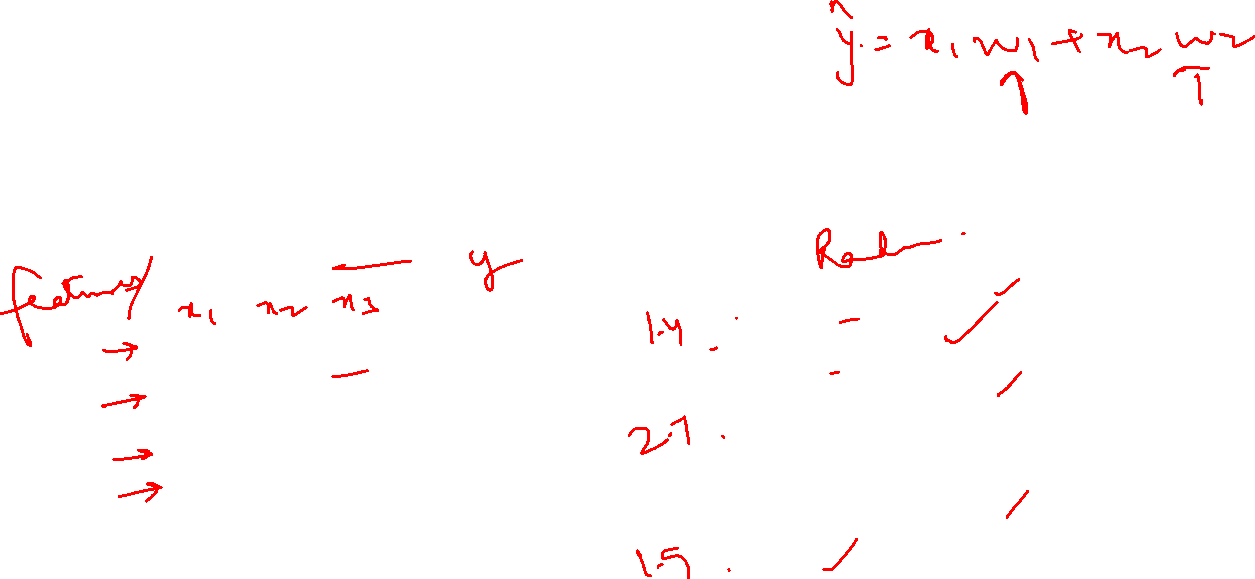 ŷ = x₁ w₁ + x₂ w₂
features x₁ x₂ x₃ y
1.4
2.7
1.5